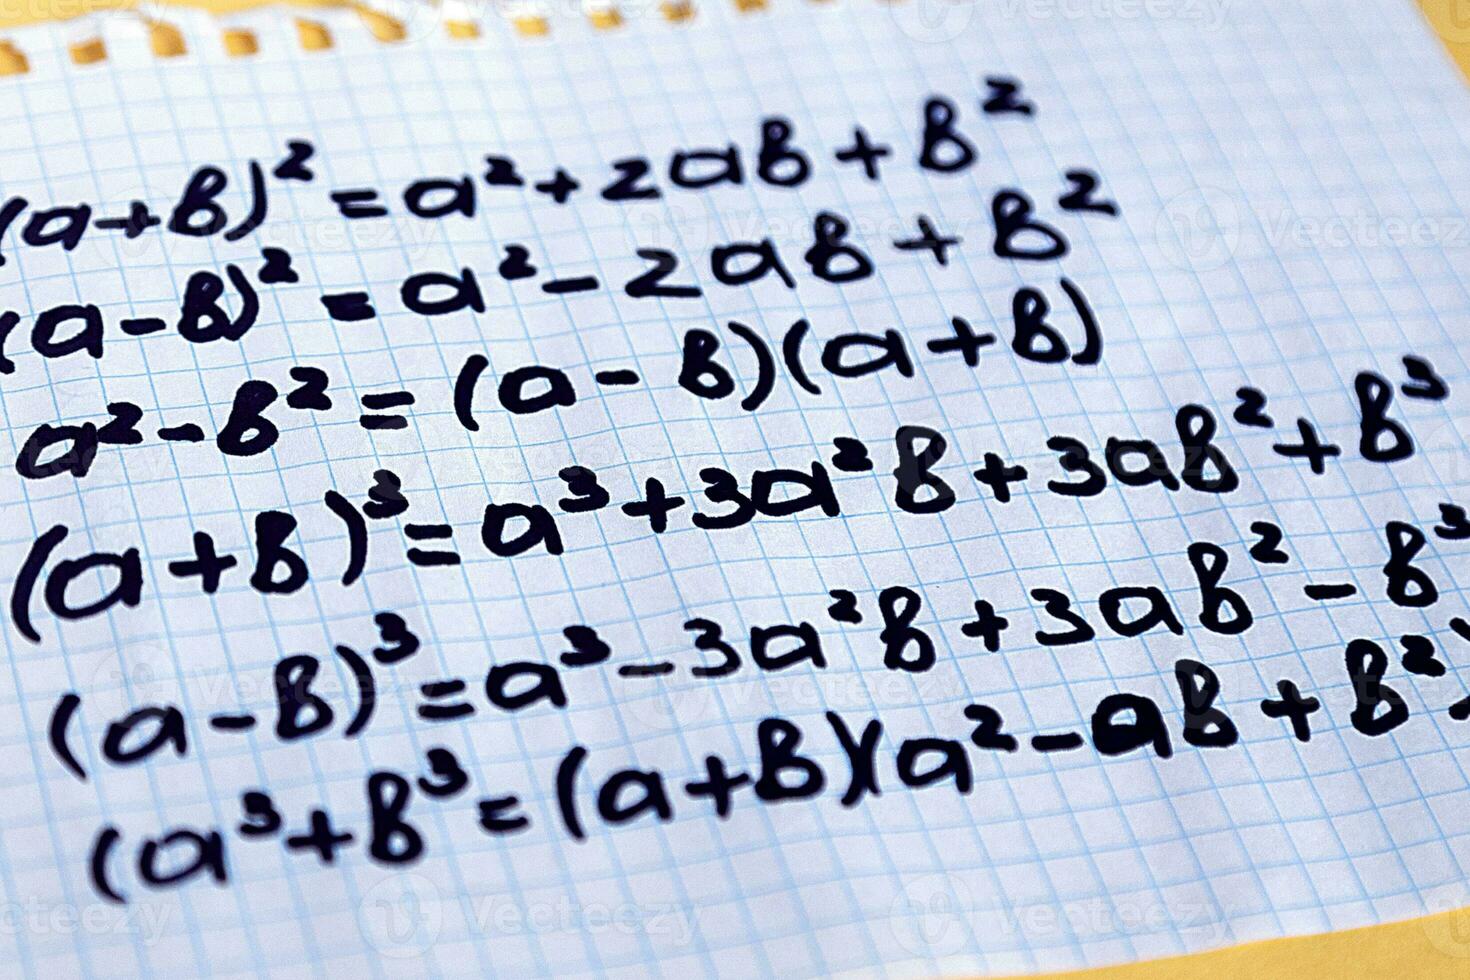 (a+b)² = a² + 2ab + b²
(a-b)² = a² - 2ab + b²
a² - b² = (a - b)(a + b)
(a+b)³ = a³ + 3a²b + 3ab² + b³
(a-b)³ = a³ - 3a²b + 3ab² - b³
(a³ + b³ = (a+b)(a² - ab + b²)
Vecteezy